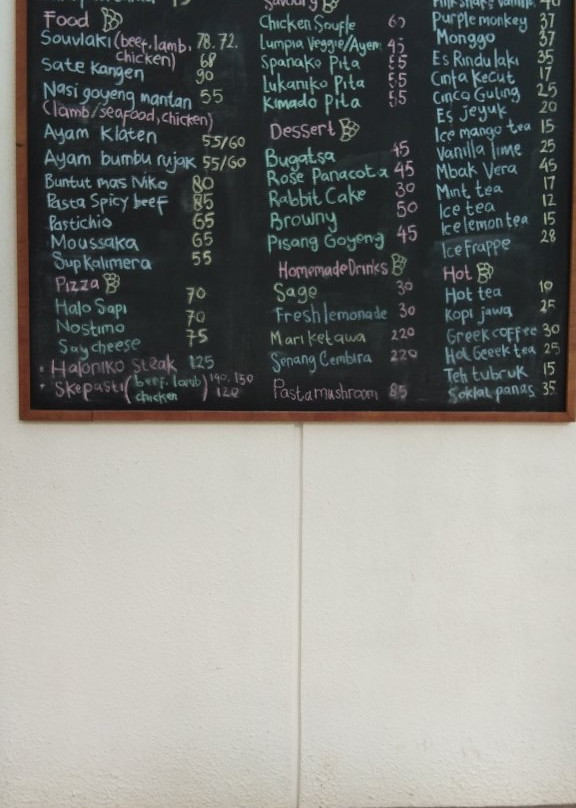 Food
Souvlaki (beef, lamb, 78. 72.
chicken) 68
Sate Kangen 90
Nasi goyeng mantan 55
(lamb/seafood, chicken)
Ayam Klaten 55/60
Ayam bumbu rujak 55/60
Buntut mas Niko 80
Pasta Spicy beef 85
Pastichio 65
Moussaka 65
Sup Kalimera 55
Pizza
Halo Sapi 70
Nostimo 70
Say cheese 75
Haloniko Steak 125
Skepasti (beef, lamb) 140. 150
chicken 120
Savoury
Chicken Soufle 60
Lumpia Veggie/Ayam 45
Spanako Pita 55
Lukaniko Pita 55
Kimado Pita 55
Dessert
Bugatsa 45
Rose Panacota 45
Rabbit Cake 30
Browny 50
Pisang Goyeng 45
Homemade Drinks
Sage 30
Fresh lemonade 30
Mari ketawa 220
Senang Gembira 220
Pasta mushroom 85
Purple monkey 37
Monggo 37
Es Rindu laki 35
Cinta Kecut 17
Cinca Guling 25
Es jeyuk 20
Ice mango tea 15
Vanilla lime 25
Mbak Vera 45
Mint tea 17
Ice tea 12
Ice lemon tea 15
Ice Frappe 28
Hot
Hot tea 10
Kopi jawa 25
Greek coffee 30
Hot Greek tea 25
Teh tubruk 15
Soklat panas 35